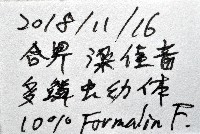 2018/11/16
合界 梁佳音
多鱗虫幼体
10% Formalin F.